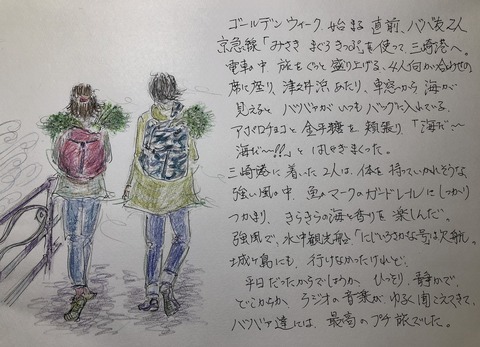 ゴールデンウィーク、始まる直前、ババ友2人
京急線「みさきまぐろきっぷ」を使って、三崎港へ。
電車の中、旅をぐっと盛り上げる、4人向かい合わせの
席に座り、津久井浜あたり、車窓から海が
見えると、ババァがいつもバッグに入れている、
アポロチョコと金平糖を頬張り、「海だ〜
海だ〜!!」と はしゃぎまくった。
三崎港に着いた2人は、体を持っていかれそうな、
強い風の中、魚マークのガードレールにしっかり
つかまり、きらきらの海と香りを楽しんだ。
強風で、水中観光船、「にじいろさかな号」は欠航。
城ヶ島にも、行けなかったけれど、
平日だったからでしょうか、ひっそり、静かで、
どこからか、ラジオの音楽が、ゆるく聞こえてきて、
ババァ達には、最高のプチ旅でした。